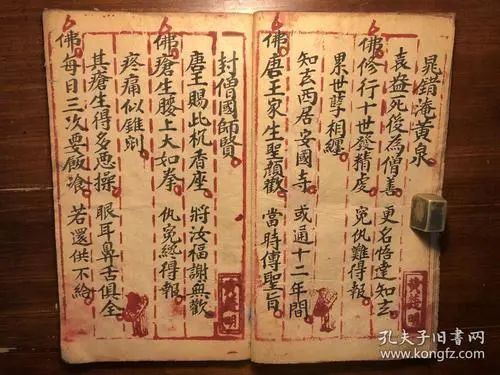 晁錯淹黃泉
袁盎死後為僧善 更名悟達知玄
佛修行十世發精虔 冤仇難得報
累世孽相纏
知玄西居安國寺 或通十二年間
佛唐王家生聖顏歡 當時傳聖旨
封僧國師賢
唐王賜此杭香座 將汝福謝與歡
佛瘡生腰上大如拳 仇冤總得報
疼痛似錐剜
其瘡生得多惡操 眼耳鼻舌俱全
佛每日三次要飯飡 若還供不給
孔夫子旧书网
www.kongfz.com